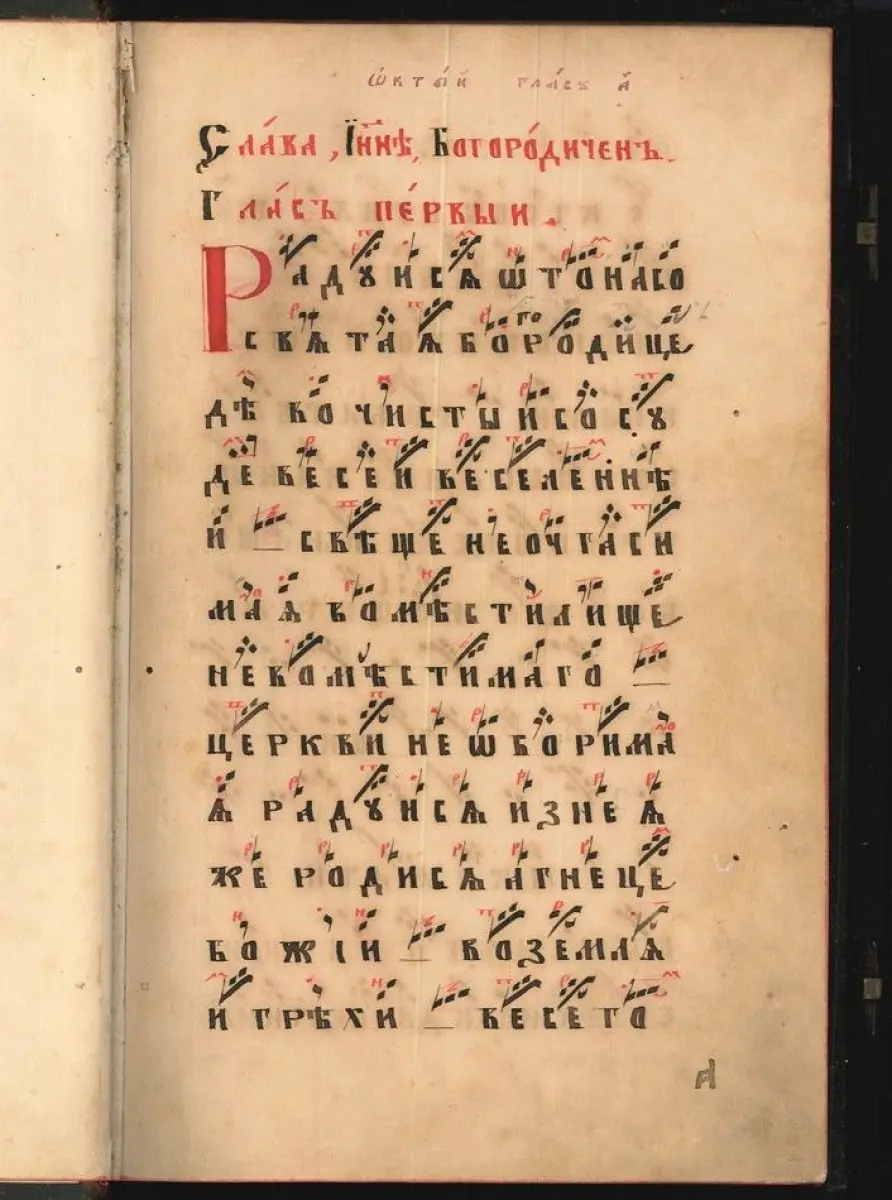 Ѡктый гласъ а҃
Сла́ва, І҆ нн҃ѣ, Богоро́диченъ.
Гла́съ пе́рвый.
Радуисѧ ѿтонасо
свѧтаѧ богородице
дѣвочистыисосу
девесеивеселеннѣ
и свѣщенеочгаси
маѧ вомѣстилище
невомѣстимаго
церквинеѡборима
ѧ радуисѧ изнеѧ
же родисѧ агнеце
божіи воземлѧ
и грѣхи весего
а